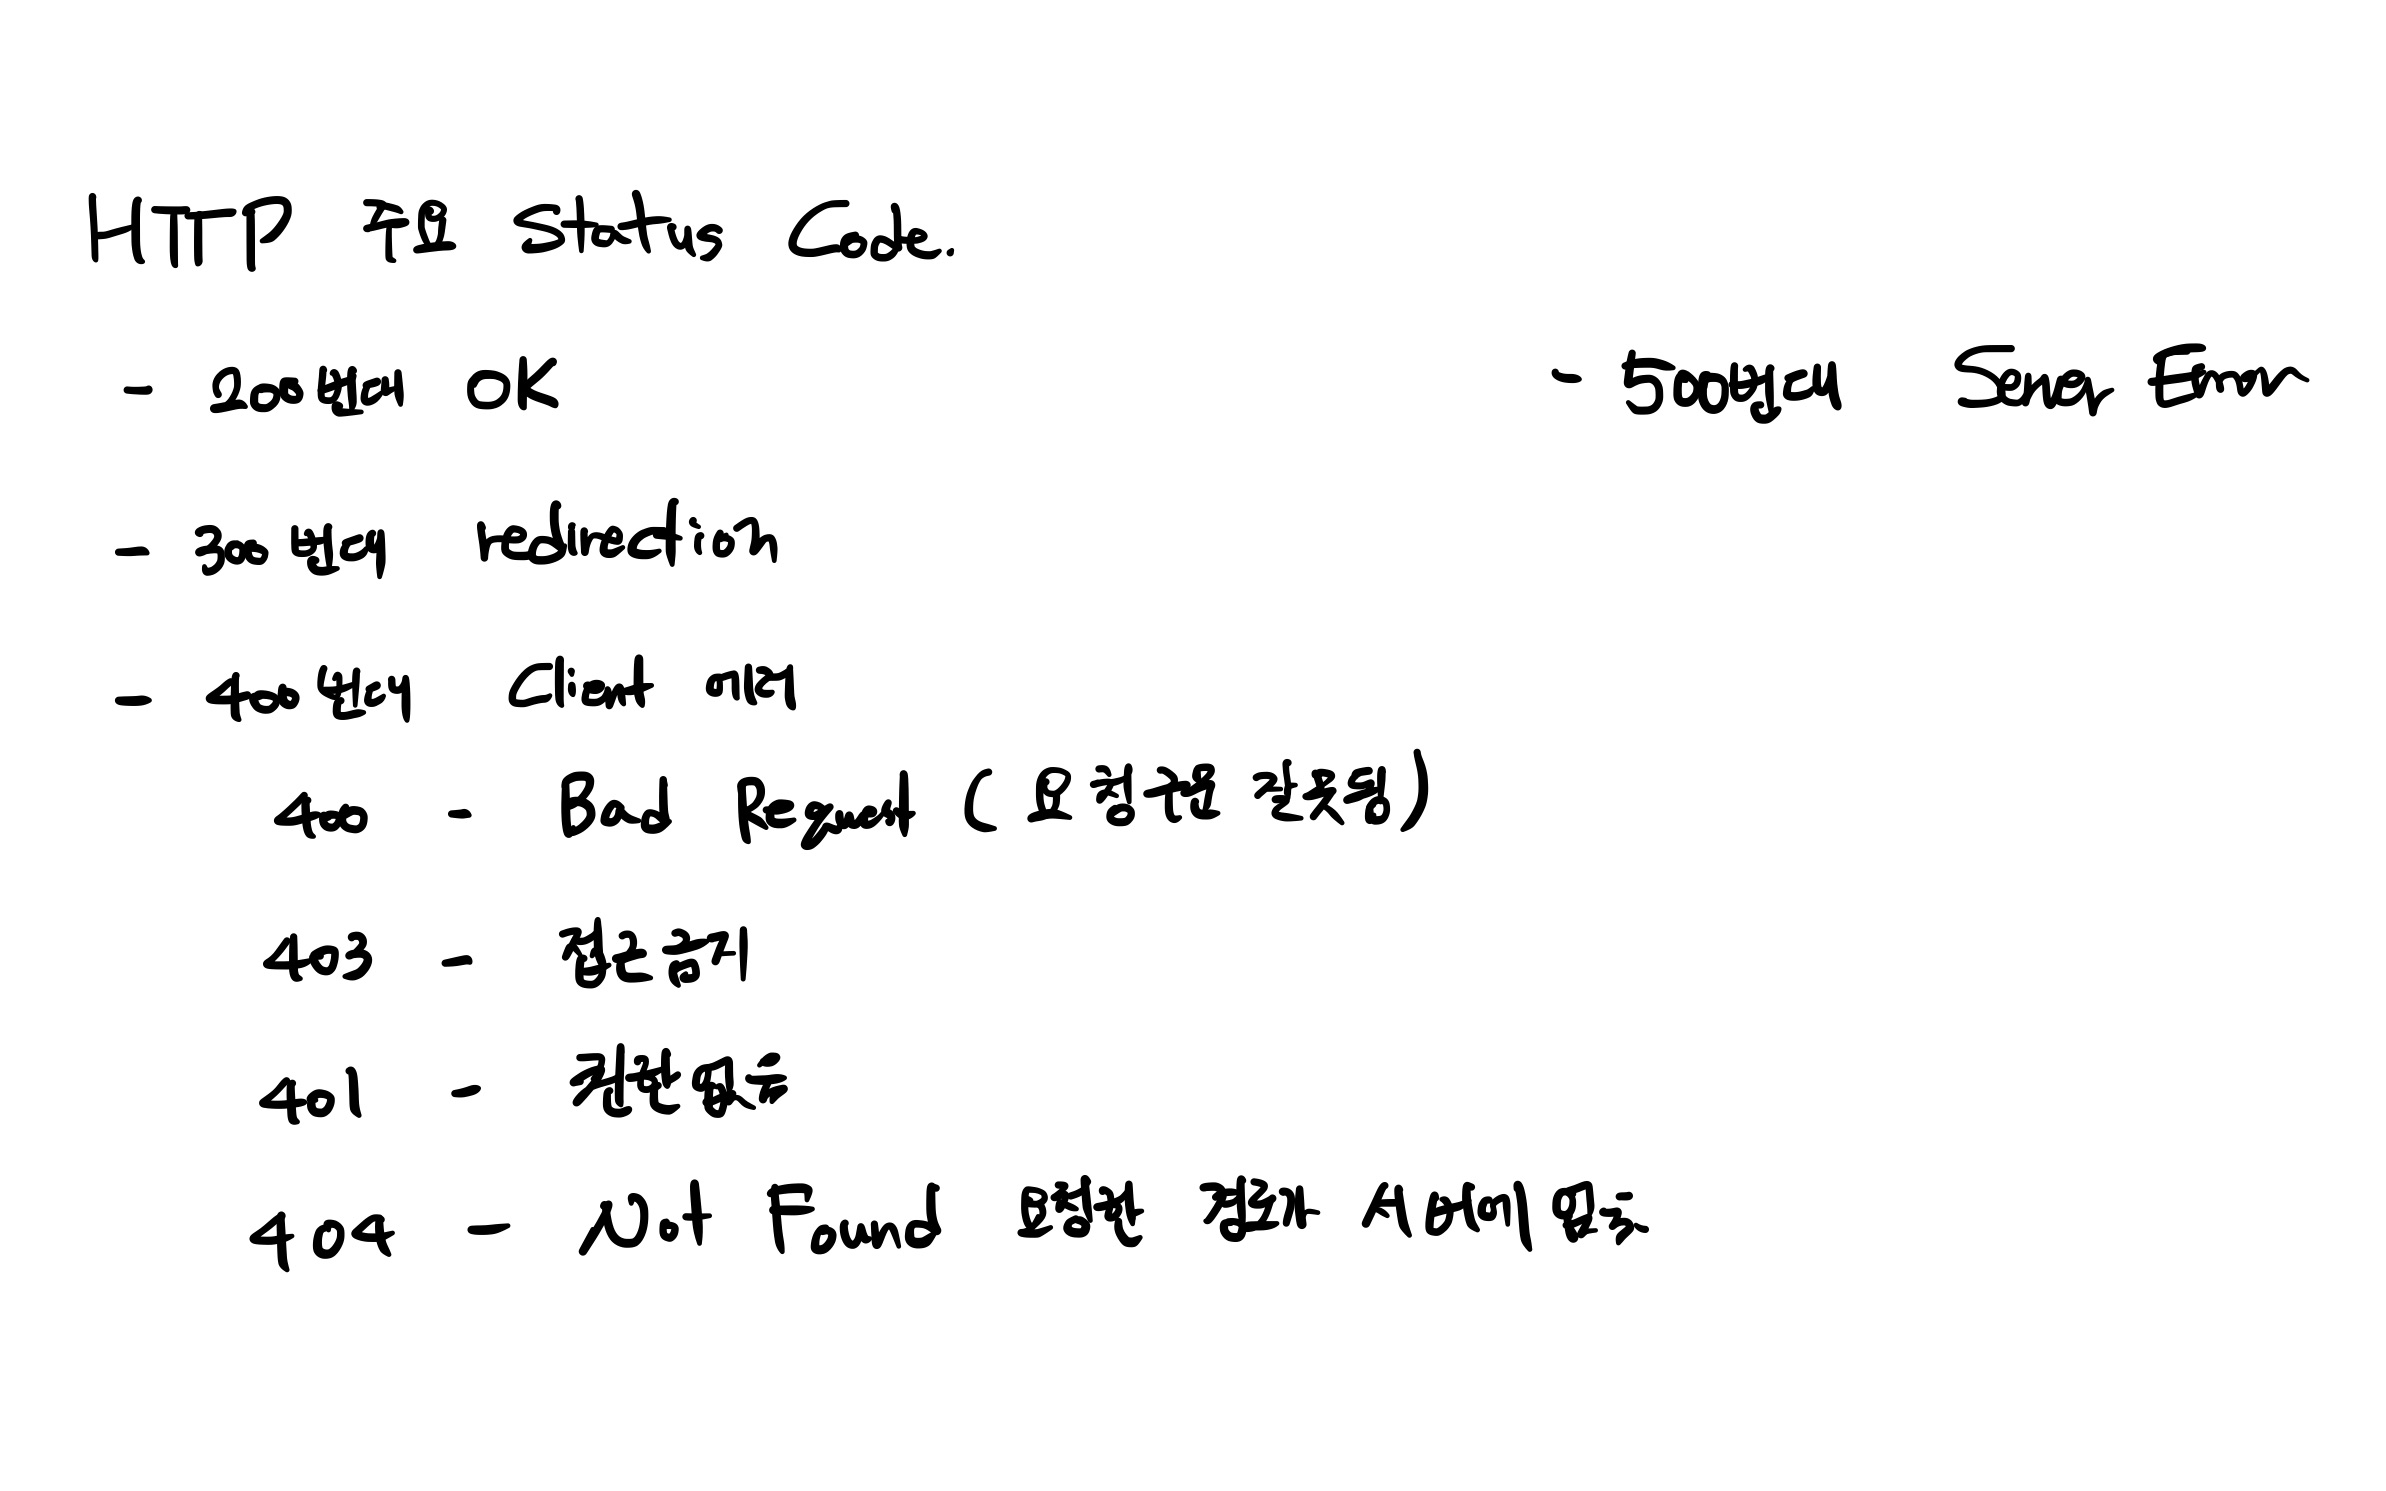 HTTP 주요 Status Code.
- 200번대 OK
- 300번대 redirection
- 400번대 Client 에러
400 - Bad Request (요청구문 잘못됨)
403 - 접근금지
401 - 권한 없음
404 - Not Found 요청한 결과가 서버에 없음.
- 500번대 Server Error